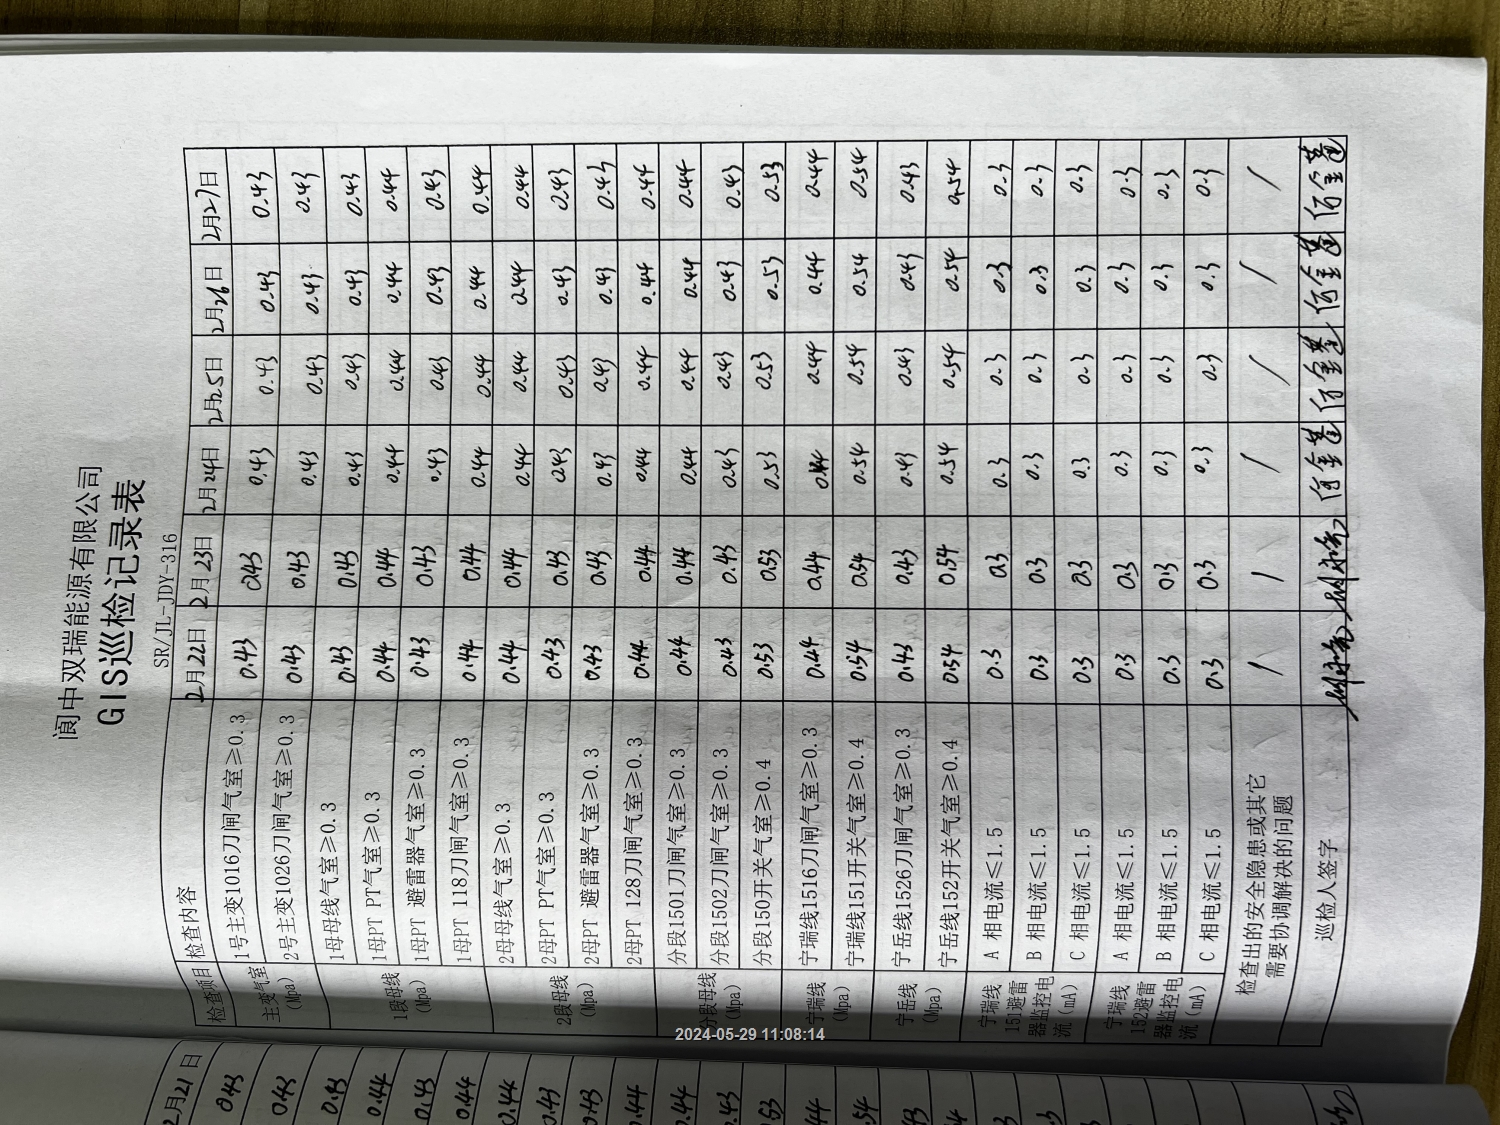 阆中双瑞能源有限公司
GIS巡检记录表
SR/JL-JDY-316
检查项目 检查内容 2月22日 2月23日 2月24日 2月25日 2月26日 2月27日
主变气室(Mpa) 1号主变1016刀闸气室≥0.3 0.43 0.43 0.43 0.43 0.43 0.43
2号主变1026刀闸气室≥0.3 0.43 0.43 0.43 0.43 0.43 0.43
1段母线(Mpa) 1母母线气室≥0.3 0.43 0.43 0.43 0.43 0.43 0.43
1母PT PT气室≥0.3 0.44 0.44 0.44 0.44 0.44 0.44
1母PT 避雷器气室≥0.3 0.43 0.43 0.43 0.43 0.43 0.43
1母PT 118刀闸气室≥0.3 0.44 0.44 0.44 0.44 0.44 0.44
2段母线(Mpa) 2母母线气室≥0.3 0.44 0.44 0.44 0.44 0.44 0.44
2母PT PT气室≥0.3 0.43 0.43 0.43 0.43 0.43 0.43
2母PT 避雷器气室≥0.3 0.43 0.43 0.43 0.43 0.43 0.43
2母PT 128刀闸气室≥0.3 0.44 0.44 0.44 0.44 0.44 0.44
分段母线(Mpa) 分段1501刀闸气室≥0.3 0.44 0.44 0.44 0.44 0.44 0.44
分段1502刀闸气室≥0.3 0.43 0.43 0.43 0.43 0.43 0.43
分段150开关气室≥0.4 0.53 0.53 0.53 0.53 0.53 0.53
宁瑞线(Mpa) 宁瑞线1516刀闸气室≥0.3 0.44 0.44 0.44 0.44 0.44 0.44
宁瑞线1551开关气室≥0.4 0.54 0.54 0.54 0.54 0.54 0.54
宁岳线(Mpa) 宁岳线1526刀闸气室≥0.3 0.43 0.43 0.43 0.43 0.43 0.43
宁岳线152开关气室≥0.4 0.54 0.54 0.54 0.54 0.54 0.54
宁瑞线151避雷器监控电流(mA) A 相电流≤1.5 0.3 0.3 0.3 0.3 0.3 0.3
B 相电流≤1.5 0.3 0.3 0.3 0.3 0.3 0.3
C 相电流≤1.5 0.3 0.3 0.3 0.3 0.3 0.3
宁瑞线152避雷器监控电流(mA) A 相电流≤1.5 0.3 0.3 0.3 0.3 0.3 0.3
B 相电流≤1.5 0.3 0.3 0.3 0.3 0.3 0.3
C 相电流≤1.5 0.3 0.3 0.3 0.3 0.3 0.3
检查出的安全隐患或其它
需要协调解决的问题 / / / / / /
巡检人签字
2月21日
0.43
0.43
0.43
0.44
0.43
0.44
0.44
0.43
0.43
0.44
0.44
2024-05-29 11:08:14